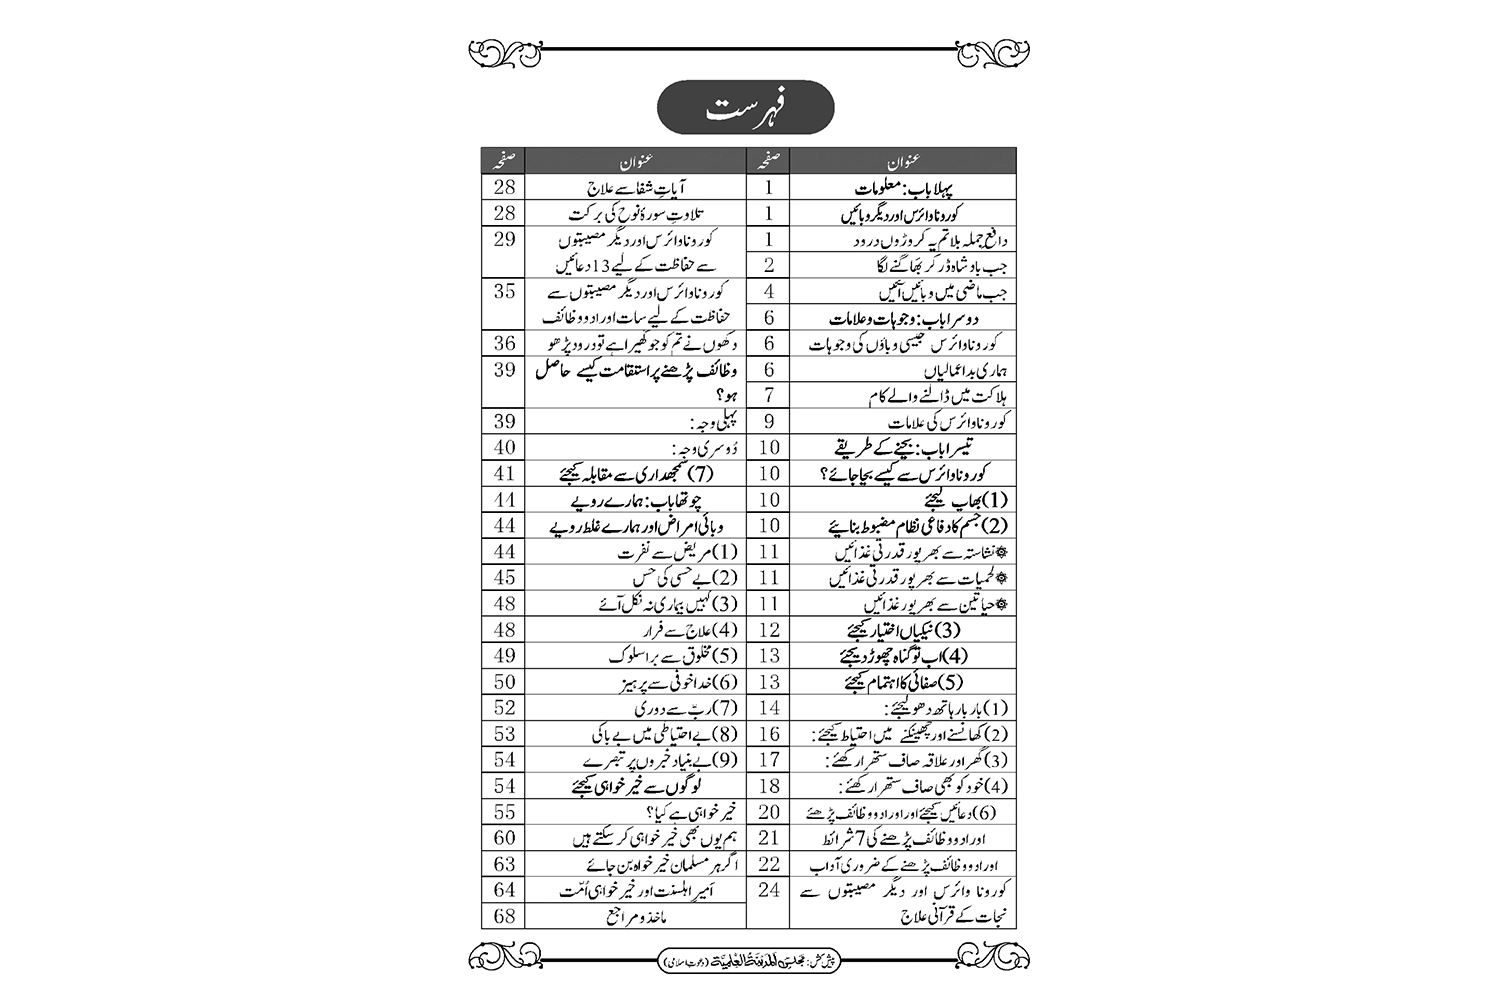 فہرست
عنوان صفحہ عنوان صفحہ
پہلا باب: معلومات 1
کورونا وائرس اور دیگر وبائیں 1
دافعِ جملہ بلا تم پہ کروڑوں درود 1
جب بادشاہ ڈر کر بھاگنے لگا 2
جب ماضی میں وبائیں آئیں 4
دوسرا باب: وجوہات و علامات 6
کورونا وائرس جیسی وباؤں کی وجوہات 6
ہماری بداعمالیاں 6
ہلاکت میں ڈالنے والے کام 7
کورونا وائرس کی علامات 9
تیسرا باب: بچنے کے طریقے 10
کورونا وائرس سے کیسے بچا جائے؟ 10
(1) بھاپ لیجئے 10
(2) جسم کا دفاعی نظام مضبوط بنائیے 10
۞ نشاستہ سے بھرپور قدرتی غذائیں 11
۞ لحمیات سے بھرپور قدرتی غذائیں 11
۞ حیاتین سے بھرپور غذائیں 11
(3) نیکیاں اختیار کیجئے 12
(4) اب تو گناہ چھوڑ دیجئے 13
(5) صفائی کا اہتمام کیجئے 13
(1) بار بار ہاتھ دھو لیجئے: 14
(2) کھانسنے اور چھینکنے میں احتیاط کیجئے: 16
(3) گھر اور علاقہ صاف ستھرا رکھئے: 17
(4) خود کو بھی صاف ستھرا رکھئے: 18
(6) دعائیں کیجئے اور اوراد و وظائف پڑھئے 20
اوراد و وظائف پڑھنے کی 7 شرائط 21
اوراد و وظائف پڑھنے کے ضروری آداب 22
کورونا وائرس اور دیگر مصیبتوں سے 24
نجات کے قرآنی علاج
آیاتِ شفا سے علاج 28
تلاوتِ سورۂ نوح کی برکت 28
کورونا وائرس اور دیگر مصیبتوں 29
سے حفاظت کے لیے 13 دعائیں
کورونا وائرس اور دیگر مصیبتوں سے 35
حفاظت کے لیے سات اوراد و وظائف
دکھوں نے تم کو جو گھیرا ہے تو درود پڑھو 36
وظائف پڑھنے پر استقامت کیسے حاصل 39
ہو؟
پہلی وجہ: 39
دُوسری وجہ: 40
(7) سمجھداری سے مقابلہ کیجئے 41
چوتھا باب: ہمارے رویے 44
وبائی امراض اور ہمارے غلط رویے 44
(1) مریض سے نفرت 44
(2) بے حسی کی حس 45
(3) کہیں بیماری نہ نکل آئے 48
(4) علاج سے فرار 48
(5) مخلوق سے برا سلوک 49
(6) خدا خوفی سے پرہیز 50
(7) ربّ سے دوری 52
(8) بے احتیاطی میں بے باکی 53
(9) بے بنیاد خبروں پر تبصرے 54
لوگوں سے خیر خواہی کیجئے 54
خیر خواہی ہے کیا؟ 55
ہم یوں بھی خیر خواہی کر سکتے ہیں 60
اگر ہر مسلمان خیر خواہ بن جائے 63
اَمیرِ اہلسنت اور خیر خواہیِ اُمّت 64
ماخذ و مراجع 68
پیش کش: مجلس المدینۃ العلمیۃ (دعوتِ اسلامی)